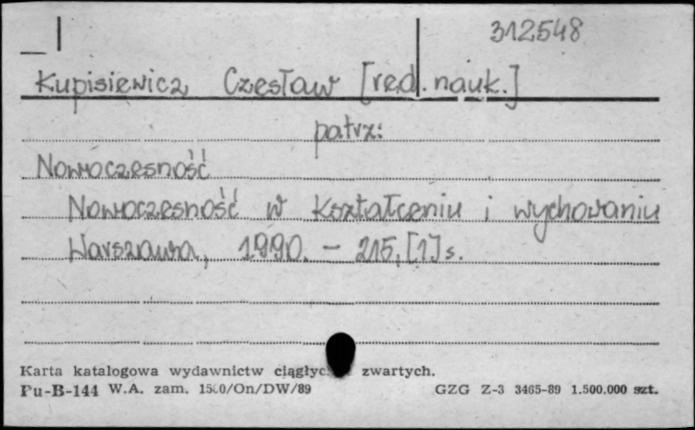 312548
Kupisiewicz, Czesław [red. nauk.]
patrz:
Nowoczesność
Nowoczesność w kształceniu i wychowaniu
Warszawa, 1990. - 215, [1] s.
Karta katalogowa wydawnictw ciągłyc zwartych.
Pu-B-144 W.A. zam. /On/DW/89 GZG Z-3 3465-89 1.500.000 szt.